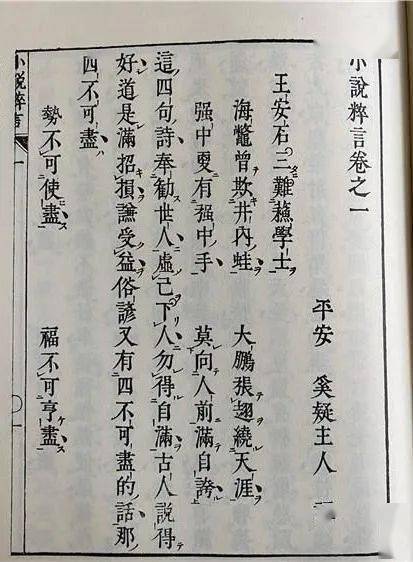 小說粹言卷之一
平安 奚疑主人
王安石三難蘓學士
海鼈曾欺井内蛙 大鵬張翅繞天涯
强中更有强中手 莫向人前滿自誇
這四句詩奉勸世人虛己下人勿得自滿古人説得
好道是滿招損謙受益俗諺又有四不可盡的話那
四不可盡
勢不可使盡 福不可亨盡
小説粹言 一